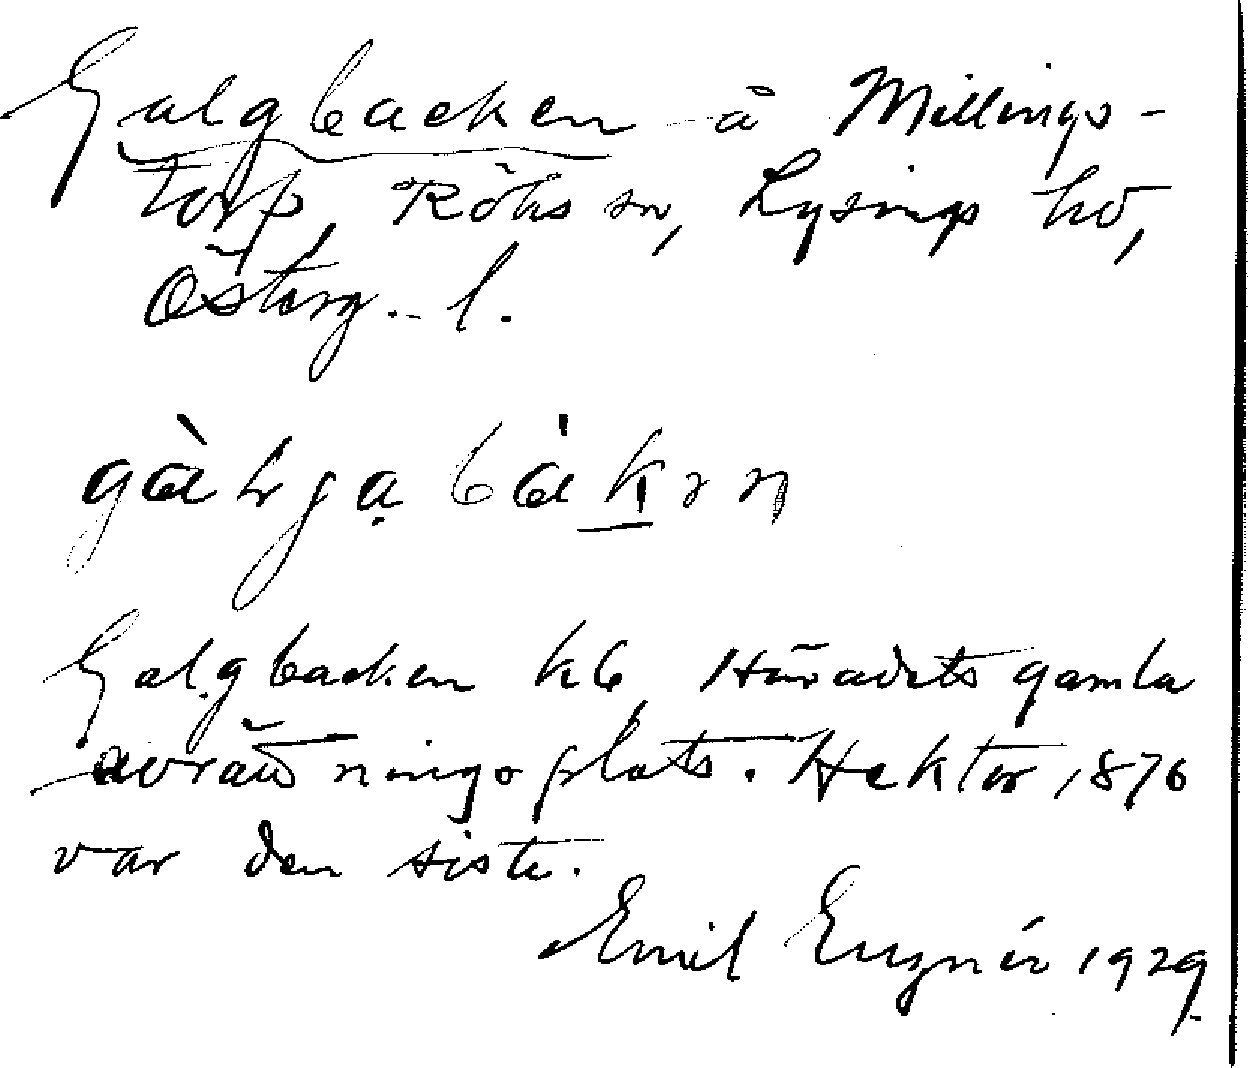 Galgbacken å Millings-
torp, Röks sn, Lysings hd,
Österg. l.
Galgbacken kb, Häradets gamla
avrättningsplats. Hektor 1876
var den siste.
Emil 1929